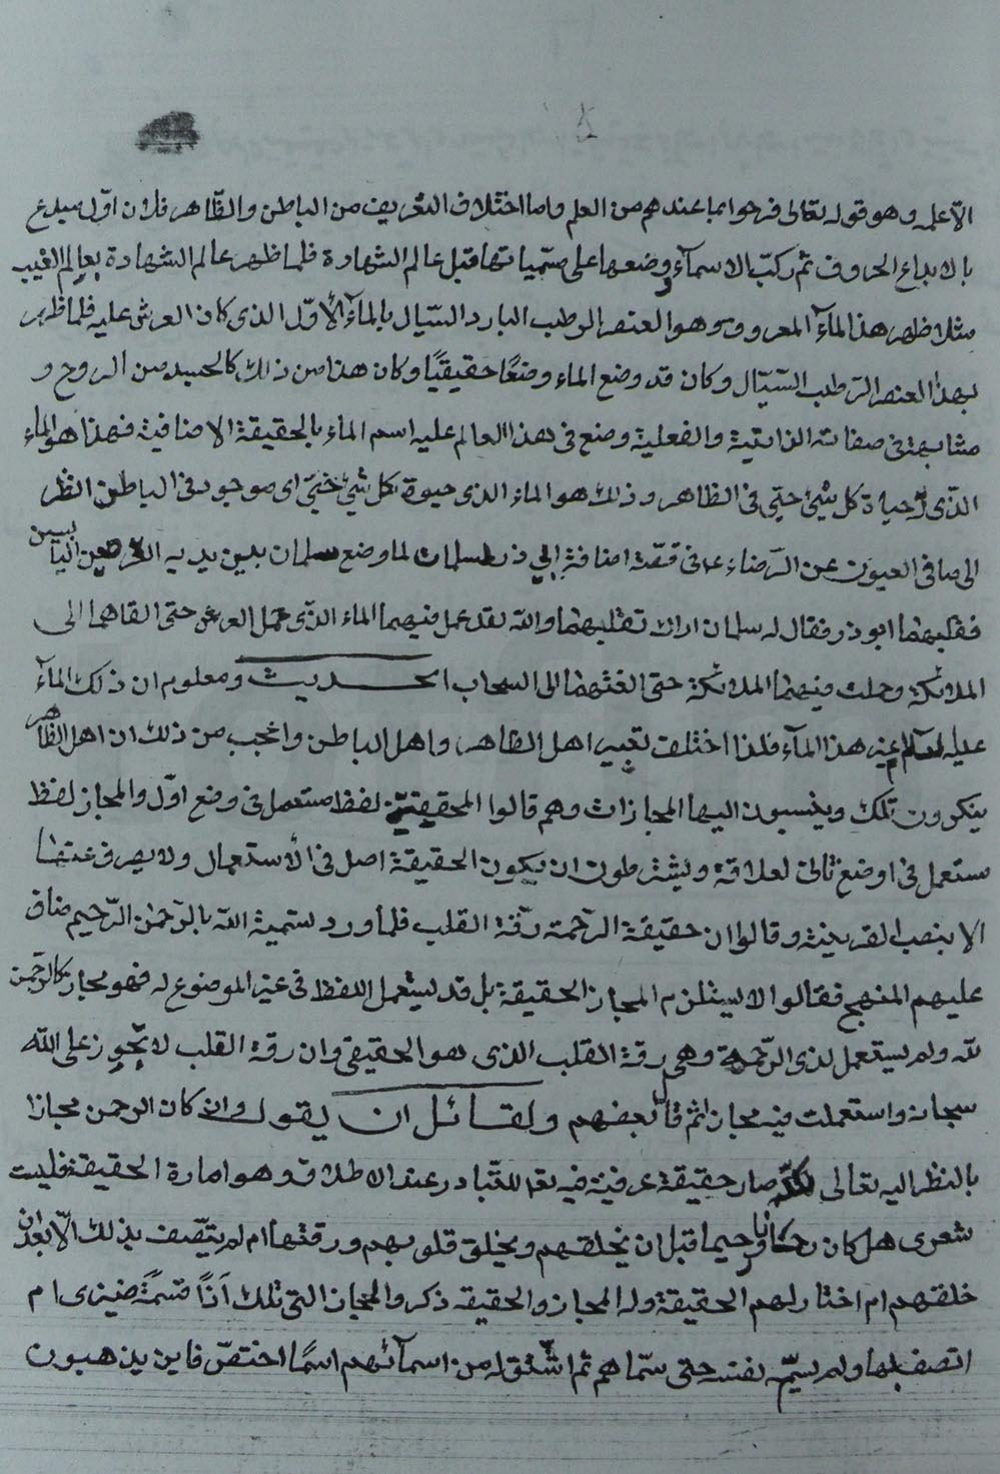 الا علمه وهو قوله تعالى فرحوا بما عندهم من العلم واما اختلاف التعريف من الباطن والظاهر فلان اول مبدع
بالابداع الحروف ثم ركبت الاسمآء ووضعها على مسمياتها قبل عالم الشهادة فلما ظهر عالم الشهادة بعالم الغيب
مثلا ظهر هذا المآء المعروف وهو العنصر الرطب البارد السيال بالمآء الأول الذى كان العرش عليه فلما ظهر
بهذا العنصر الرطب السيال وكان قد وضع الماء وضعًا حقيقيًا وكان هذا من ذلك كالجسد من الروح و
مشابهته فى صفاته الذاتية والفعلية وضع فى هذا العالم عليه اسم الماء بالحقيقة الاضافية فهذا هو الماء
الذى به حياة كل شىء حىّ فى الظاهر وذلك هو الماء الذى حيوة كل شىء حىّ اى موجود فى الباطن انظر
الى ما فى العيون عن الرضاء ع فى قصّة اضافة ابى ذر لسلمان لما وضع سلمان بين يديه الرغيفين اليابسين
فقلبهما ابو ذر فقال له سلمان اراك تقلبهما والله لقد عمل فيهما الماء الذى حمل العرش حتى القاهما الى
الملائكة وعملت فيهما الملائكة حتى القتهما الى السحاب الحديث ومعلوم ان ذلك المآء
عليه السلام غير هذا المآء فلذا اختلف تعبير اهل الظاهر واهل الباطن واعجب من ذلك ان اهل الظاهر
ينكرون تلك وينسبون اليها المجازات وهم قالوا الحقيقة لفظ مستعمل فى وضع اول والمجاز لفظ
مستعمل فى اوضع ثانى لعلاقة ويشترطون ان يكون الحقيقة اصل فى الأستعمال ولا يصرف عنها
الا بنصب القرينة وقالوا ان حقيقة الرحمة رقة القلب فلما ورد تسمية الله بالرحمن الرحيم ضاق
عليهم المنهج فقالوا لا يستلزم المجاز الحقيقة بل قد يستعمل اللفظ فى غير الموضوع له فهو مجاز كالرحمن
لله ولم يستعمل لذى الرحمة وهى رقة القلب الذى هو الحقيقى وان رقة القلب لا تجوز على الله
سبحانه واستعملت فيه مجازا ثم قال بعضهم ولقائل ان يقول وان كان الرحمن مجازا
بالنظر اليه تعالى لكنه صار حقيقة عرفية فيه تعالى للتبادر عند الاطلاق وهو امارة الحقيقة فليت
شعرى هل كان رحمانا ورحيما قبل ان يخلقهم ويخلق قلوبهم ورقتها ام لم يتصف بذلك الا بعد ان
خلقهم ام اختار لهم الحقيقة وله المجاز والحقيقه ذكر والمجاز التى تلك اذًا قسمة ضيزى ام
اتصف بها ولم يسمّ نفسه حتى سمّاهم ثم اشتق له من اسمآئهم اسمًا اختص فاين يذهبون